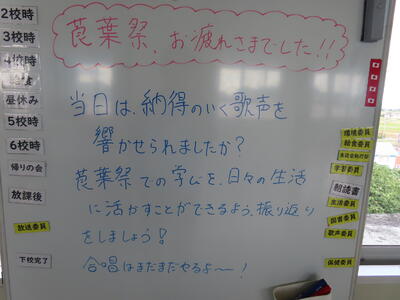 2校時
3校時
4校時
給食
昼休み
5校時
6校時
帰りの会
放課後
放送委員
下校完了
莨葉祭、お疲れさまでした!!
当日は、納得のいく歌声を
響かせられましたか?
莨葉祭での学びを、日々の生活
に活かすことができるよう、振り返り
をしましょう!
合唱はまだまだやるよ〜!
環境委員
給食委員
学習委員
朝読書
生活委員
図書委員
歌声委員
保健委員